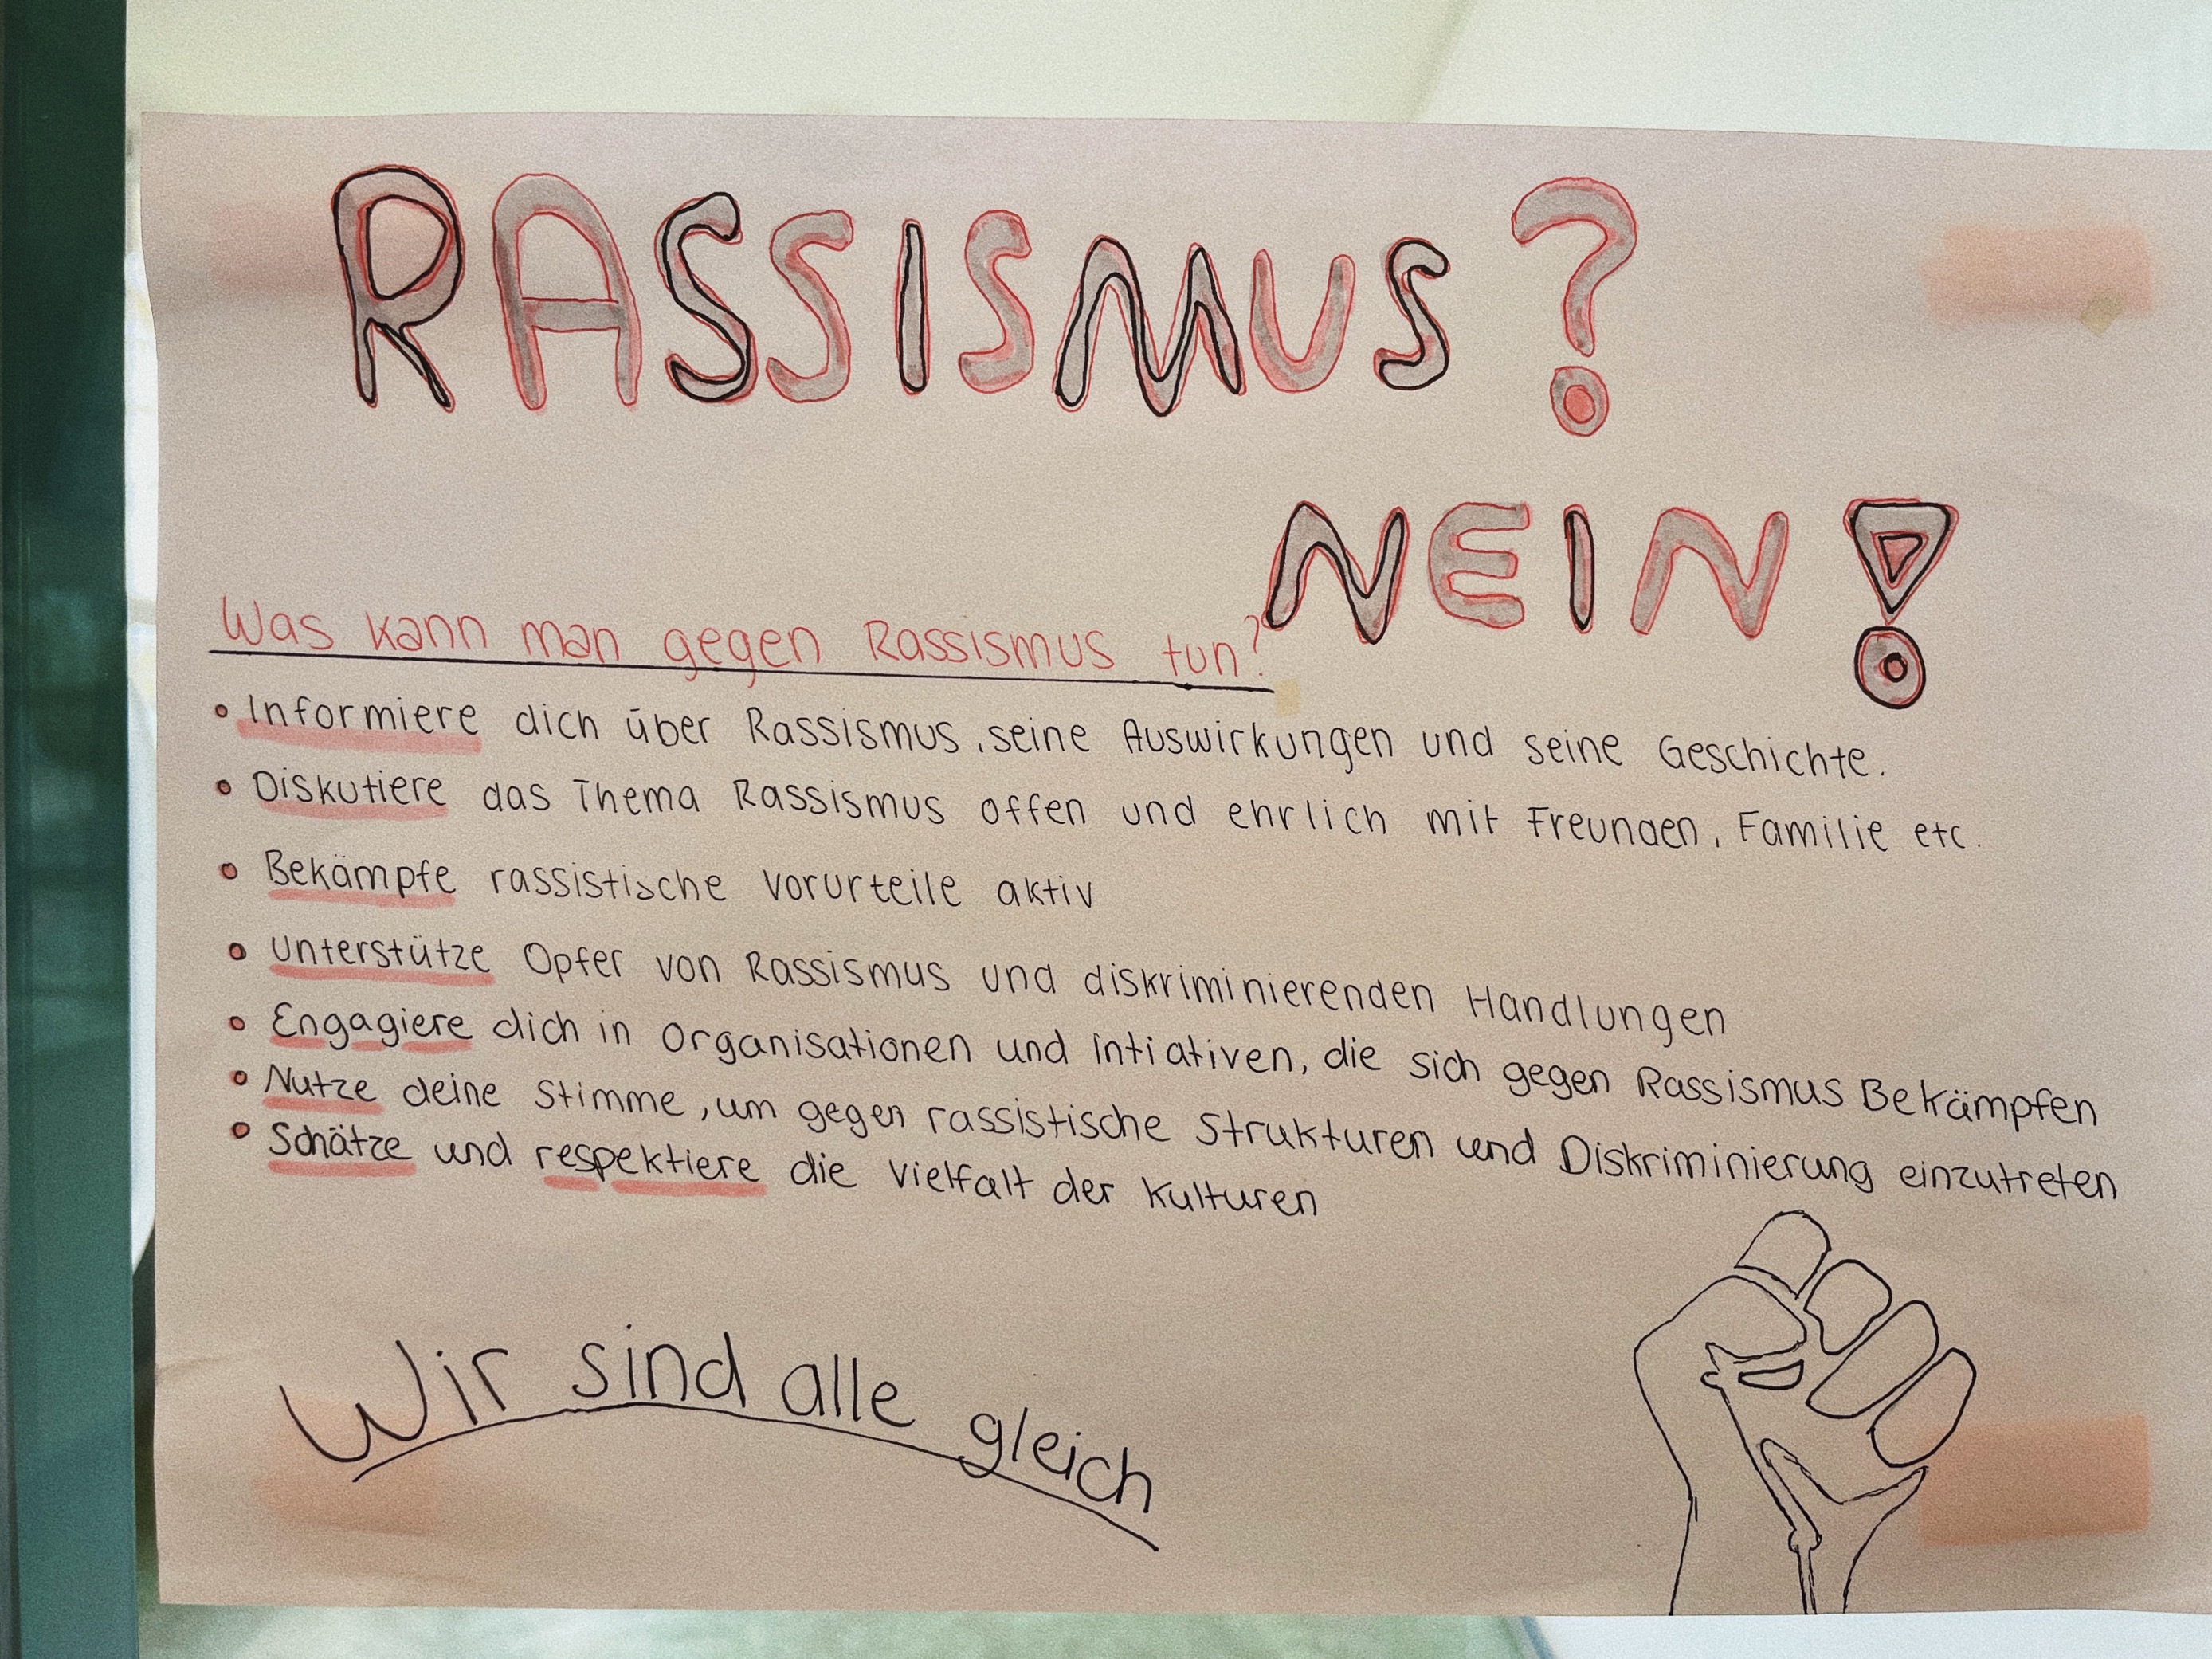 RASSISMUS?
NEIN!
Was kann man gegen Rassismus tun?
• Informiere dich über Rassismus, seine Auswirkungen und seine Geschichte.
• Diskutiere das Thema Rassismus offen und ehrlich mit Freunden, Familie etc.
• Bekämpfe rassistische Vorurteile aktiv
• Unterstütze Opfer von Rassismus und diskriminierenden Handlungen
• Engagiere dich in Organisationen und intiativen, die sich gegen Rassismus Bekämpfen
• Nutze deine Stimme, um gegen rassistische Strukturen und Diskriminierung einzutreten
• Schätze und respektiere die Vielfalt der Kulturen
Wir sind alle gleich